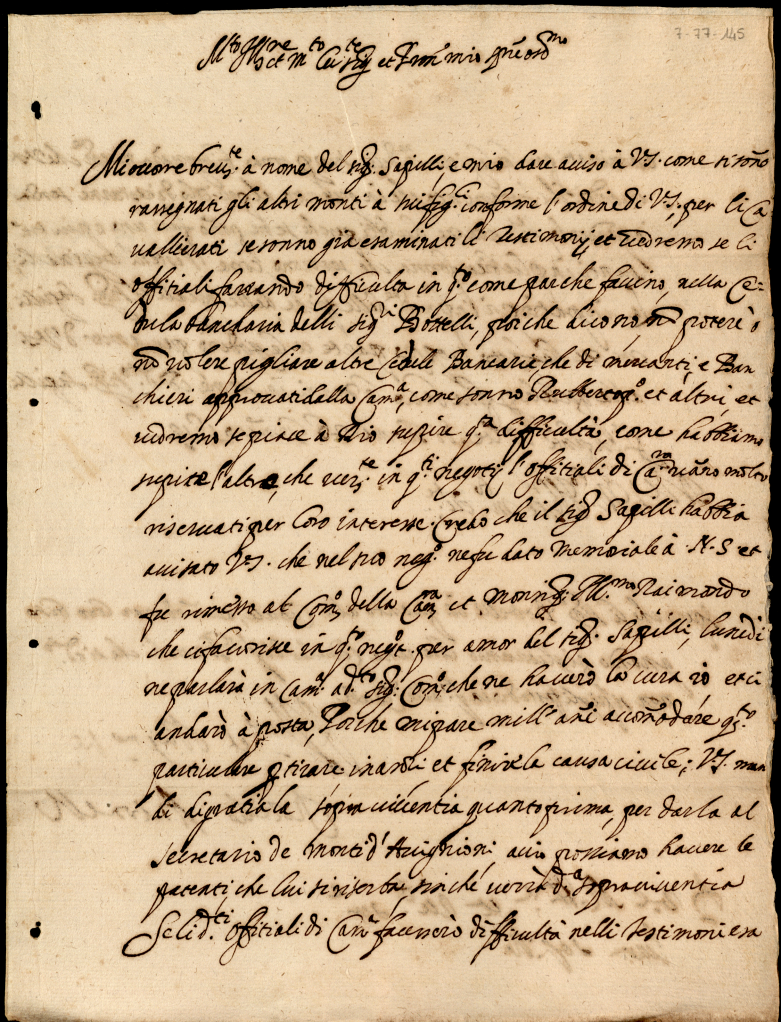 7-77-145
M.to Ill.re et M.to Ecc.te Sig.r et P.ron mio oss.mo
Mi occorre breve.te à nome del sig.r Sapilli e mio dare aviso à V.S. come si sono
rassegnati gli altri monti à sig.ri conforme l'ordine di V.S., per li Ca
vallierati se sonno gia esaminati li Testimonij et vedremo se li
offitiali faranno difficulta in q.to come par che faccino, nella Ce-
dula bancharia delli sig.ri Bottelli, poiche dicono nõ potere ò
nõ volere pigliare altre Cedule Bancarie che di mercanti, e Ban
chieri approvati dalla Cam.a, come sonno et altri, et
vedremo se piace à Dio supire q.ta difficultà, come habbiamo
supite l'altre, che ver.te in q.ti negotij l'offitiali di Ca.ra vano molto
riservati per loro interesse. Credo che il sig.r Sapilli habbia
avisato V.S. che nel suo neg.o ne fu dato memoriale à N.S. et
fu rimesso al Com.o della Cam.ra et monsig.r Ill.mo Raimondo
che ci favorisce in q.to neg.o per amor del sig.r Sapilli, lunedi
ne parlarà in Cam.a ad.to sig.r Com.o che ne haverò la cura io et ci
andarò à posta, Perché mi pare mill'ani accomodare q.to
particulare p tirare inanzi et finire la causa civile; V.S. man
di di gratia la sopraviventia quanto prima, per darla al
secretario de monti d'Avignioni acciò possiamo havere le
patenti che lui si riserba sinché verrà d.a sopraviventia
Se li d.ti offitiali di Cam.a facessero difficultà nelli Testimoni esa